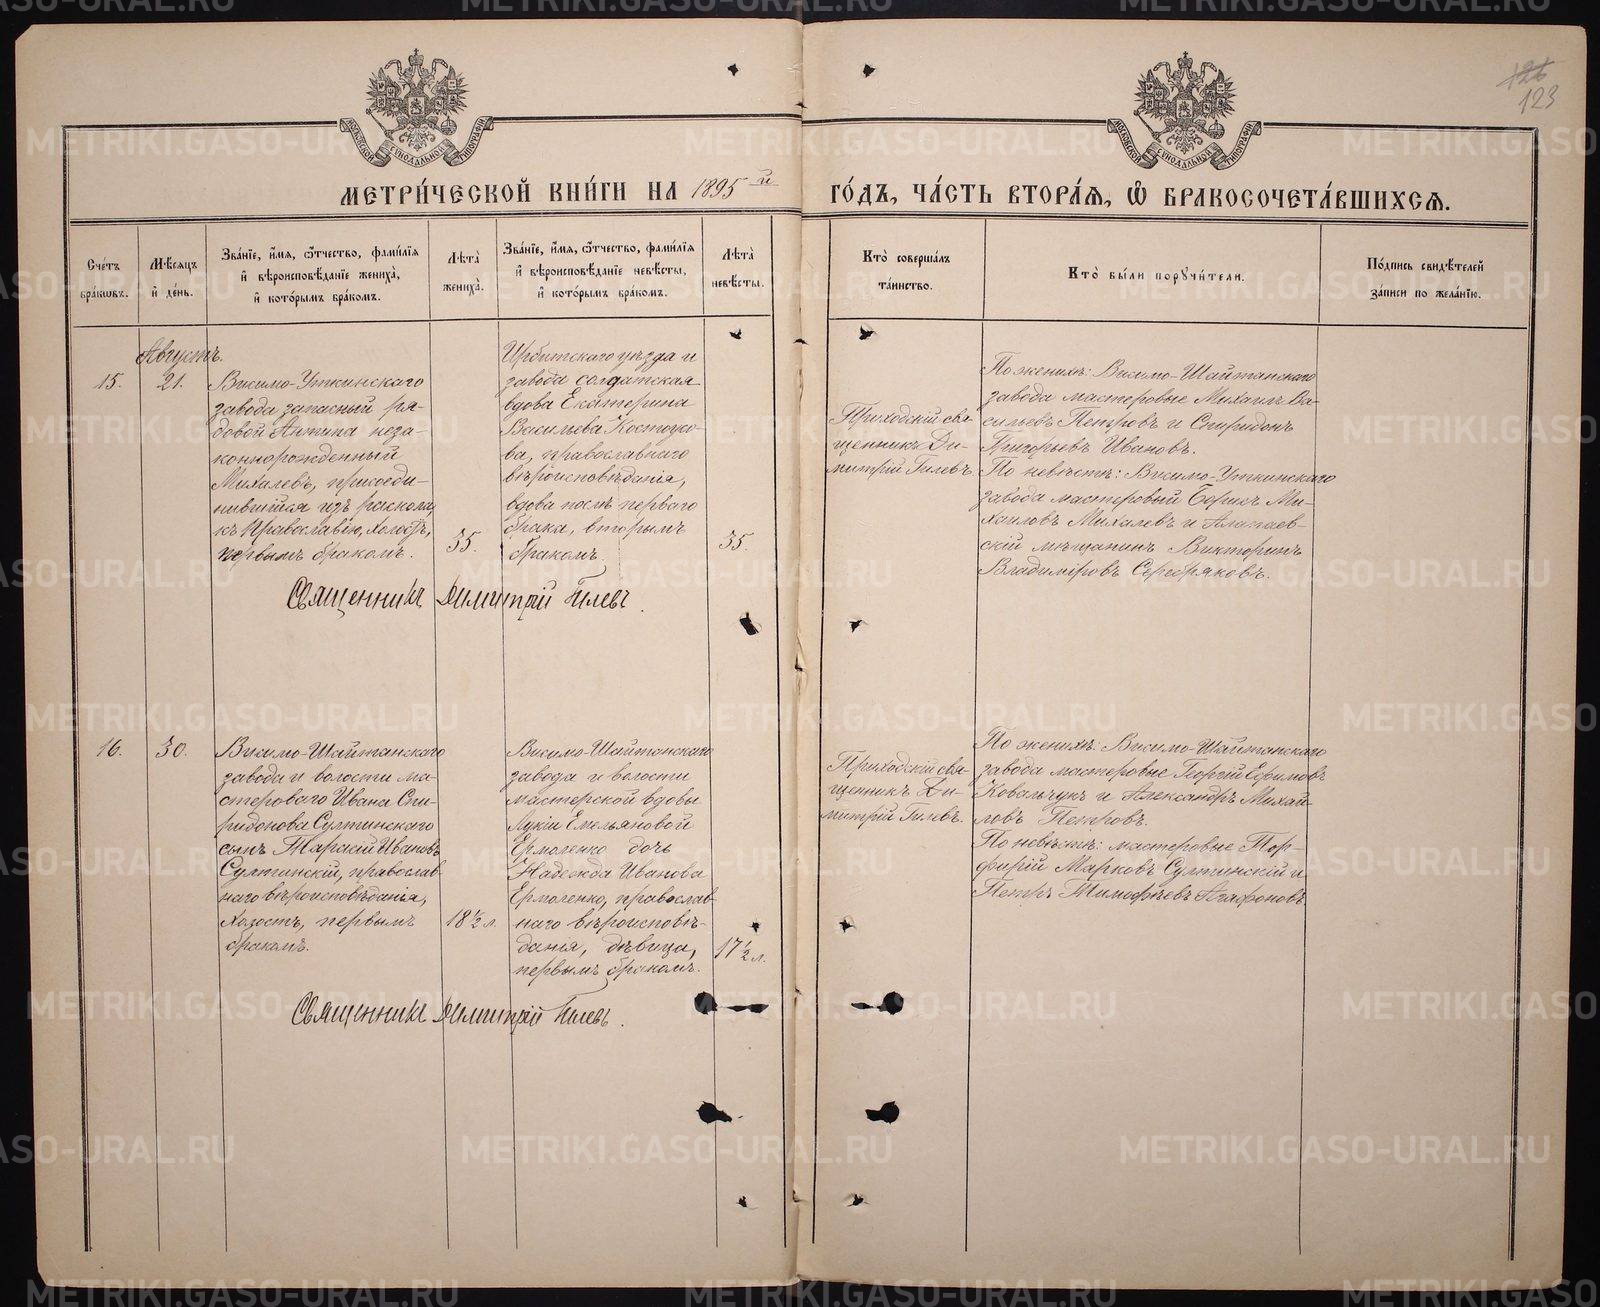 126
123
МОСКОВСКОЙ СѴНОДАЛЬНОЙ ТИПОГРАФІИ
МОСКОВСКОЙ СѴНОДАЛЬНОЙ ТИПОГРАФІИ
МЕТРИ́ЧЕСКОЙ КНИ́ГИ НА 1895й ГО́ДЪ, ЧА́СТЬ ВТОРА́Я, Ѽ БРАКОСОЧЕТА́ВШИХСЯ.
Сче́тъ бра́кѡвъ.
Мѣ́сяцъ й де́нь.
Зва́нїе, и́мя, ѻ҆́тчество, фами́лїя
й вѣроисповѣ́данїе жениха̀,
й кото́рымъ бра́комъ.
Лѣта̀ жениха̀.
Зва́нїе, и́мя, ѻ҆́тчество, фами́лїя
й вѣроисповѣ́данїе невѣ́сты,
й кото́рымъ бра́комъ.
Лѣта̀ невѣ́сты.
Кто̀ соверша́лъ та́инство.
Кто̀ бы́ли порꙋчи́тели.
По́дпись свидѣ́телей за́писи по жела́нїю.
15.
Августъ.
21.
Висимо-Уткинскаго
завода запасный ря-
довой Антипа неза-
коннорожденный
Михалевъ, присоеди-
нившійся изъ раскола
къ Православію, холостъ,
первымъ бракомъ.
35.
Ирбитскаго уѣзда и
завода солдатская
вдова Екатерина
Васильева Костоусо-
ва, православнаго
вѣроисповѣданія,
вдова послѣ перваго
брака, вторымъ
бракомъ.
35.
Приходскій свя-
щенникъ Ди-
митрій Гилевъ.
По женихѣ: Висимо-Шайтанскаго
завода мастеровые Михаилъ Ва-
сильевъ Петровъ и Спиридонъ
Григорьевъ Ивановъ.
По невѣстѣ: Висимо-Уткинскаго
завода мастеровый Борисъ Ми-
хаиловъ Михалевъ и Алапаев-
скій мѣщанинъ Викторинъ
Владиміровъ Серебряковъ.
Священникъ Димитрій Гилевъ.
16.
30.
Висимо-Шайтанскаго
завода и волости ма-
стероваго Ивана Спи-
ридонова Султинскаго
сынъ Тарасій Ивановъ
Султинскій, православ-
наго вѣроисповѣданія,
холостъ, первымъ
бракомъ.
18½ л.
Висимо-Шайтанскаго
завода и волости
мастерской вдовы
Лукіи Емельяновой
Ермоленко дочь
Надежда Иванова
Ермоленко, православ-
наго вѣроисповѣ-
данія, дѣвица,
первымъ бракомъ.
17½ л.
Приходскій свя-
щенникъ Ди-
митрій Гилевъ.
По женихѣ: Висимо-Шайтанскаго
завода мастеровые Георгій Ефимовъ
Ковальчукъ и Александръ Михай-
ловъ Петровъ.
По невѣстѣ: мастеровые Пор-
фирій Марковъ Султинскій и
Петръ Тимофѣевъ Агафоновъ
Священникъ Димитрій Гилевъ.
METRIKI.GASO-URAL.RU